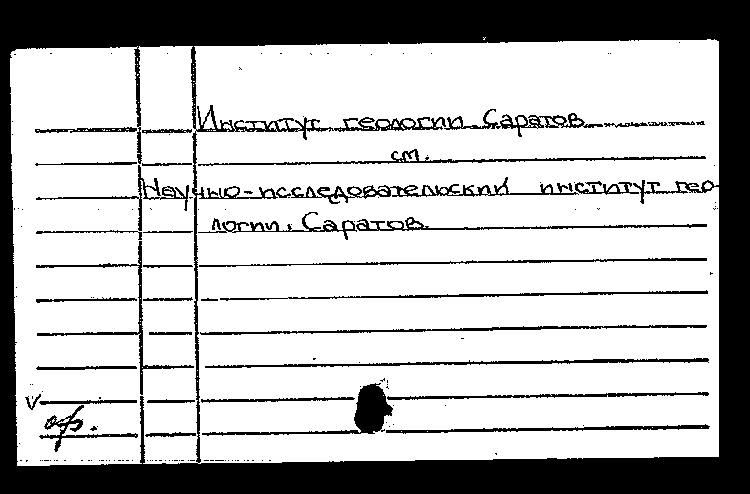 Институт геологии. Саратов
см.
Научно-исследовательский институт гео-
логии. Саратов.
V